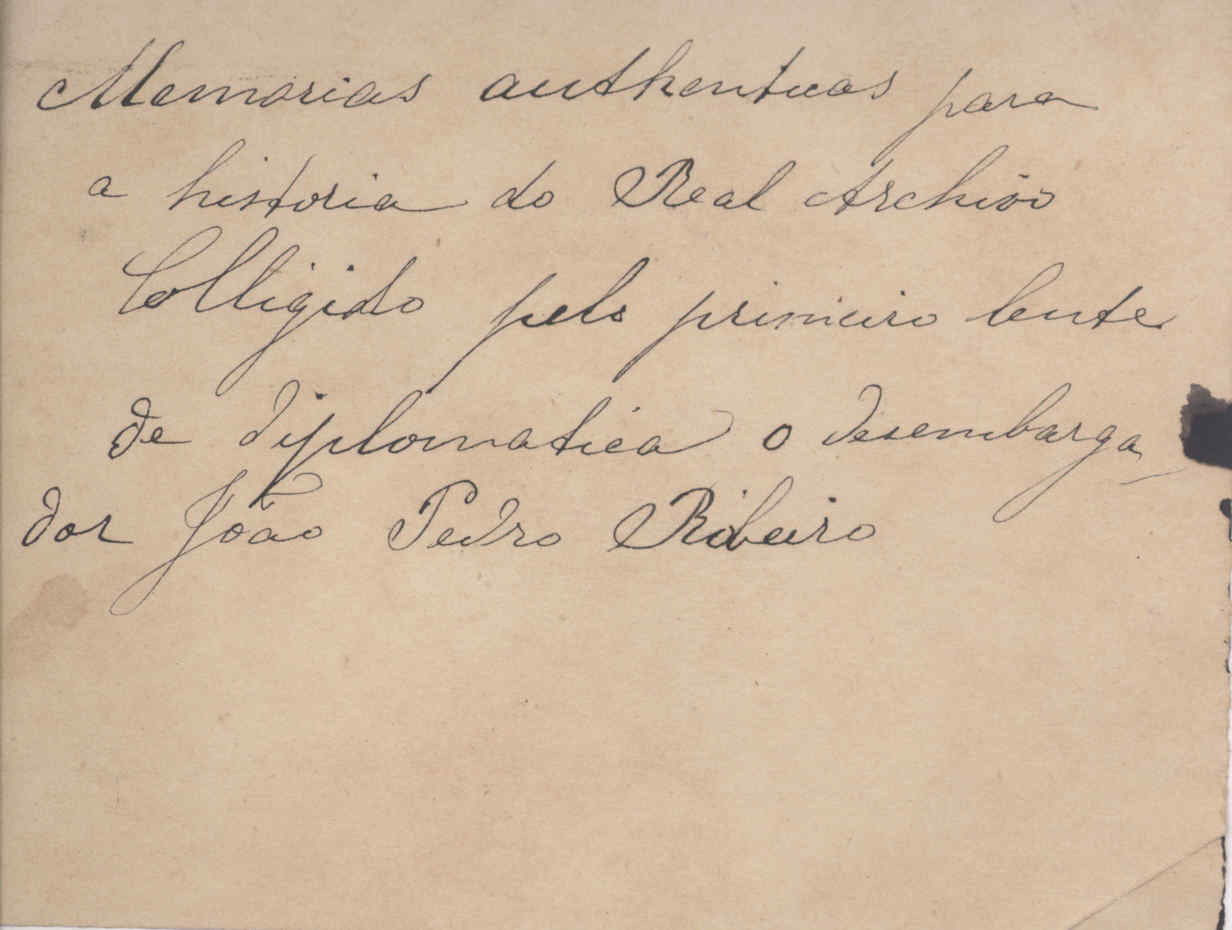 Memorias authenticas para
a historia do Real Archivo
Colligido pelo primeiro lente
de diplomatica o desembarga
dor João Pedro Ribeiro